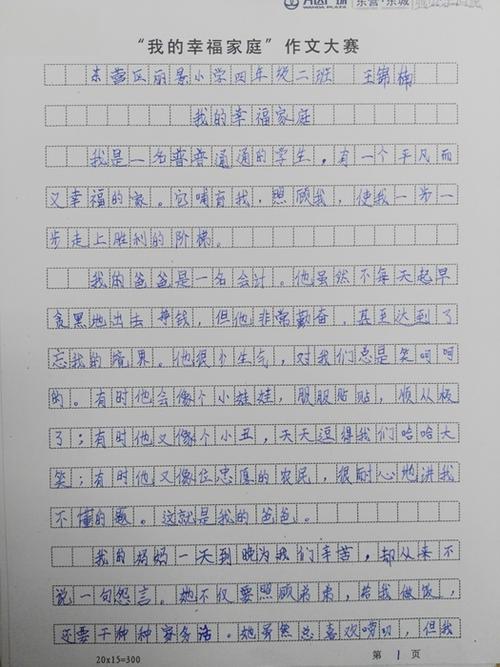 万达广场 东营·东城
“我的幸福家庭”作文大赛
东营区丽景小学四年级二班 王锦楠
我的幸福家庭
我是一名普普通通的学生,有一个平凡而
又幸福的家。它哺育我,照顾我,使我一步一
步走上胜利的阶梯。
我的爸爸是一名会计。他虽然不每天起早
贪黑地出去挣钱,但他非常勤奋,甚至达到了
忘我的境界。他很少生气,对我们总是笑呵呵
的。有时他会像个小娃娃,服服贴贴,顺从极
了;有时他又像个小丑,天天逗得我们哈哈大
笑;有时他又像位忠厚的农民,很耐心地讲我
不懂的题。这就是我的爸爸。
我的妈妈一天到晚为我们辛苦,却从来不
说一句怨言。她不仅要照顾弟弟,给我做饭,
还要干种种家务活。她虽然总喜欢唠叨,但我
20x15=300 第 1 页